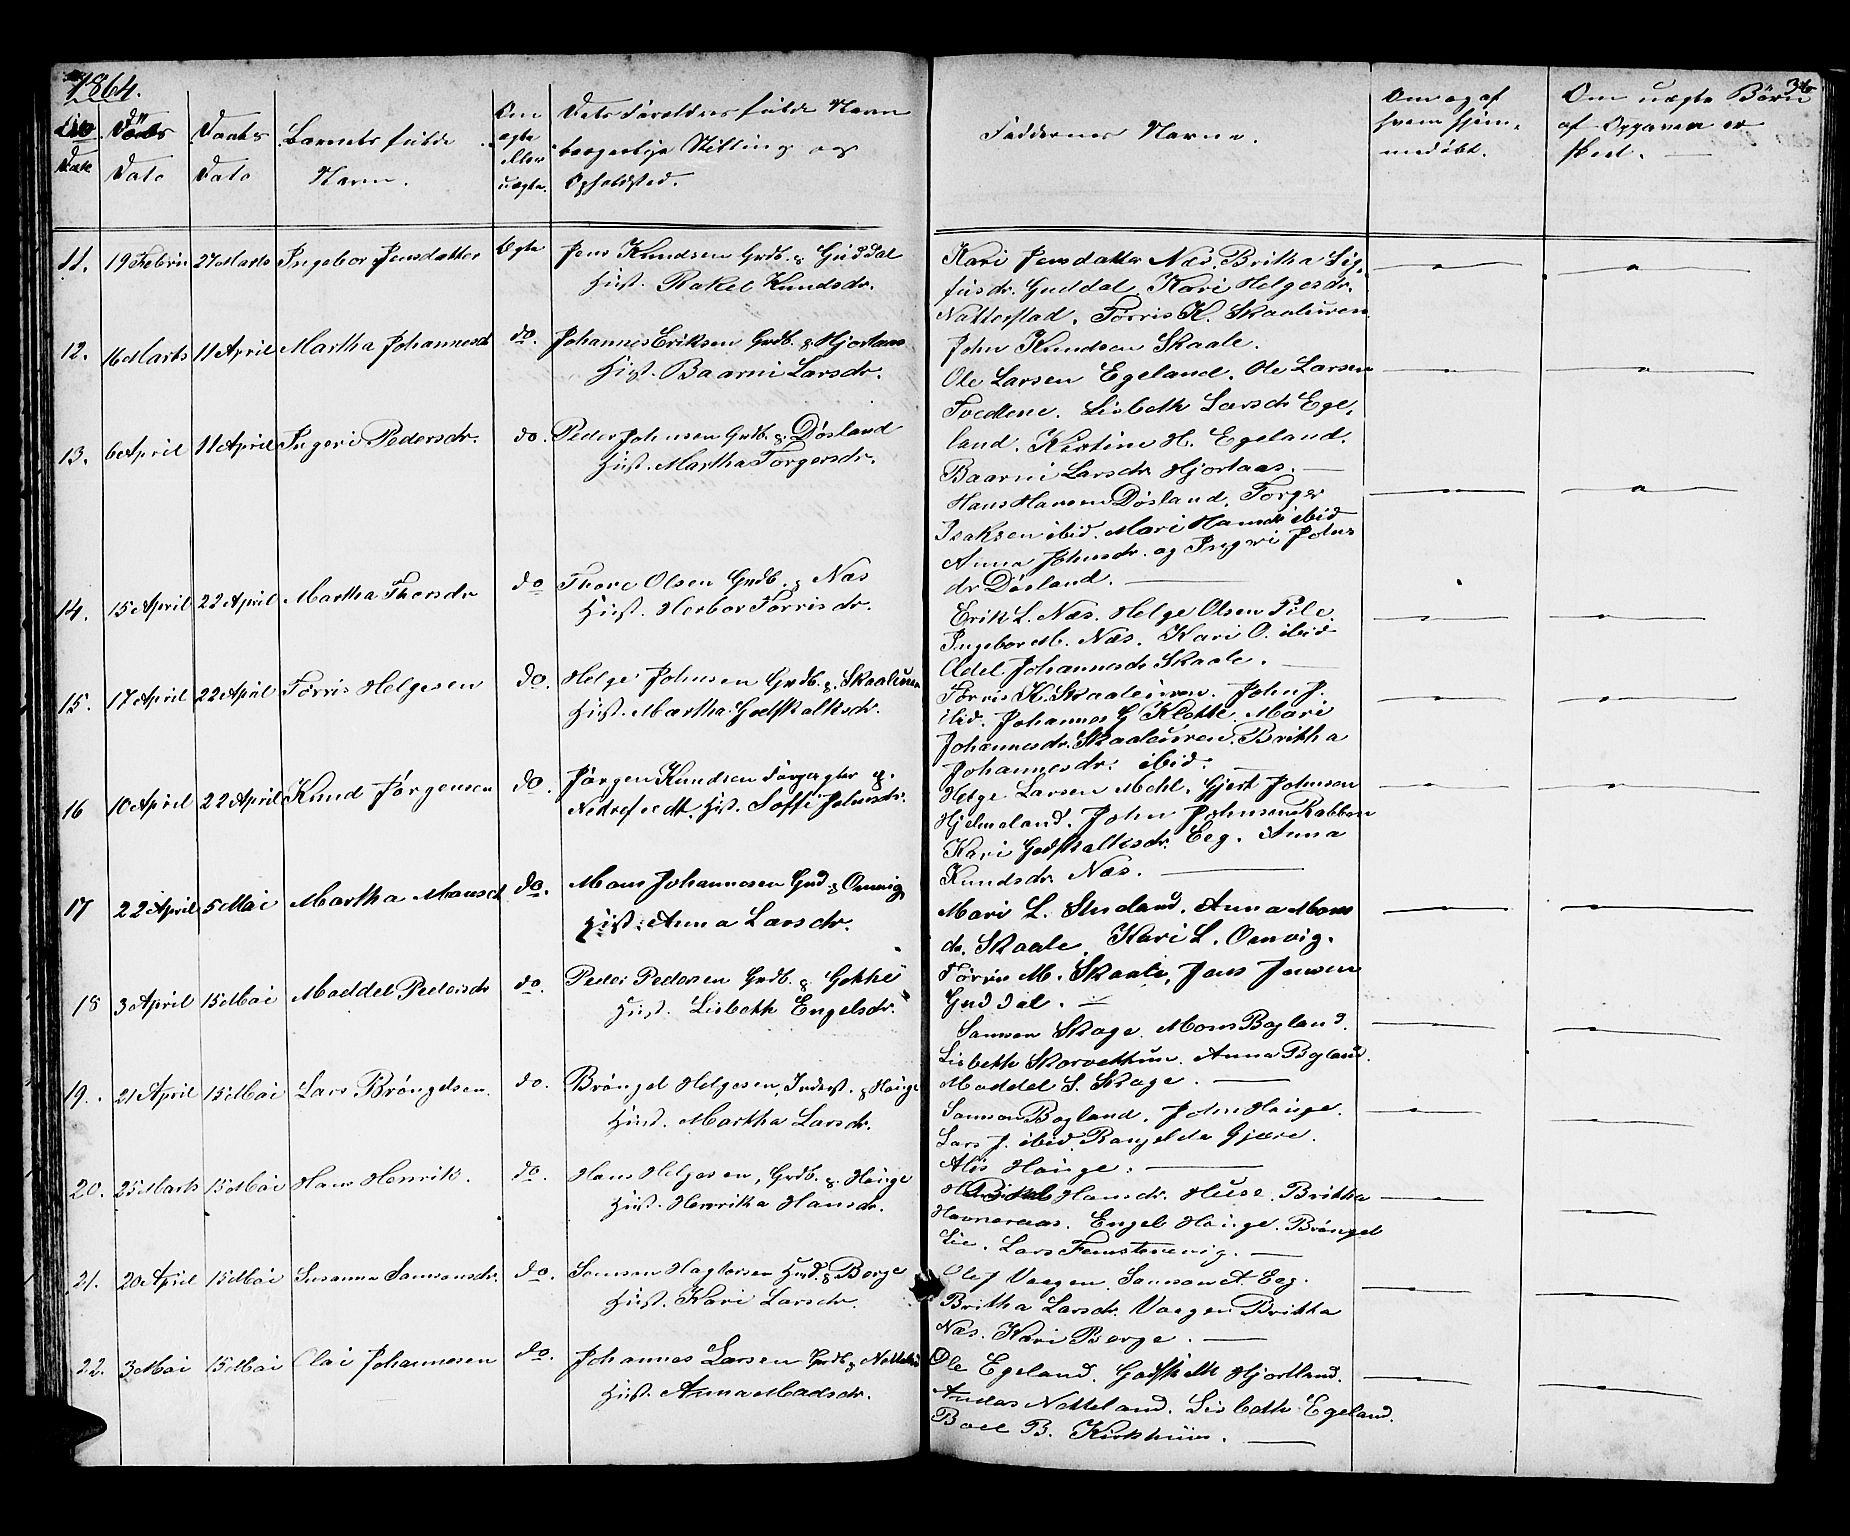 1864.
36
Dato
Fødsels
Dato
Daabs
Dato
Barnets fulde
Navn.
Om
ægte
eller
uægte.
Dets Forældres fulde Navn
borgerlige Stilling og
Opholdsted.
Faddernes Navne.
Om og af
hvem hjem-
medøbt.
Om uægte Børn
af Opgaven er
skeet.
11. 19 Febru 27 Marts Ingebor Jensdatter Ægte Jens Knudsen Grdb. & Guddal
Hust. Rakel Knudsdr.
Kari Jensdatter Næs. Britha Sig-
fusdr. Guddal. Kari Helgesdr.
Natterstad. Tørris K. Skaaluren
John Knudsen Skaale.
12. 16 Marts 11 April Martha Johannesd do. Johannes Eriksen Grdb. & Hjortaas
Hust. Baarni Larsdr.
Ole Larsen Egeland. Ole Larsen
Tvedtene. Lisbeth Larsdr Ege-
land. Kirstine H. Egeland.
Baarni Larsdr Hjortaas.
13. 6 April 11 April Ingeri Pedersdr. do. Peder Johnsen Grdb. & Døsland
Hust. Martha Torgersdr.
Hans Hansen Døsland. Torger
Isaksen ibid. Mari Hansdr ibid
Anna Johnsdr. og Ingeri Johns
dr Døsland.
14. 15 April 22 April Martha Thorsdr do Thore Olsen Grdb. & Næs
Hust. Herbor Tørrisdr.
Erik L. Næs. Helge Olsen Pile.
Ingebor M. Næs. Kari O. ibid
Adel Johannesdr Skaale.
15. 17 April 22 April Tørris Helgesen do. Helge Johnsen Grdb. & Skaaluren
Hust. Martha Godskalksdr.
Tørris K. Skaaluren. John J.
ibid. Johannes G Klette. Mari
Johannesdr. Skaaleuren. Britha
Johannesdr. ibid.
16 10 April 22 April Knud Jørgensen do. Jørgen Knudsen Forpagter &
Nedrefvedt. Hust. Soffi Johnsdr.
Helge Larsen Mehl. Gjert Johnsen
Hjelmeland. John Johnsen Rabben
Kari Godskalksdr. Eeg. Anna
Knudsdr. Næs.
17 22 April 5 Mai Martha Monsd do. Mons Johannesen Grd. & Omvig
Hust. Anna Larsdr.
Mari L. Studand. Anna Mons
dr. Skaale. Kari L. Omvig.
Tørris M. Skaale, Jens Jensen
Guddal.
18 3 April 15 Mai Maddel Pedersdr do. Peder Pedersen Grdb. & Gjekhe
Hust. Lisbeth Engelsdr.
Samson Skage. Mons Bogland.
Lisbeth Skorvethun. Anna Bogland.
Maddel S. Skage.
19. 21 April 15 Mai Lars Brøngelsen. do. Brøngel Helgesen, Inderst. & Hauge
Hust. Martha Larsdr.
Samson Bogland. John Hauge.
Lars J. ibid. Rangelda Gjære.
Alis Hauge.
20. 25 Marts 15 Mai Hans Henrik. do. Hans Helgesen, Grdb. & Hauge
Hust. Henrika Hansdr.
Hansdr. Huse. Britha
Havneraas. Engel Hauge. Brøngel
Lie. Lars Femstenevig.
21. 20 April 15 Mai Susanna Samsonsdr. do. Samson Hagtorsen Husd. & Borge
Hust. Kari Larsdr.
Ole J Vaagen. Samson A. Eeg.
Britha Larsdr. Vaagen Britha
Næs. Kari Borge.
22. 3 Mai 15 Mai Olai Johannesen do. Johannes Larsen Grdb. & Netteland
Hust. Anna Madsdr.
Ole Egeland. Godskalk Hjortland.
Andas Netteland. Lisbeth Egeland.
Boel B. Kirkhuus.